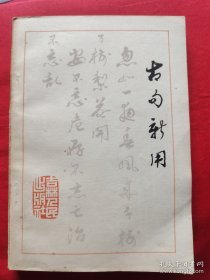 古句新用
忽如一夜春風来千樹
万樹梨花開
安不忘危存不忘亡治
不忘乱